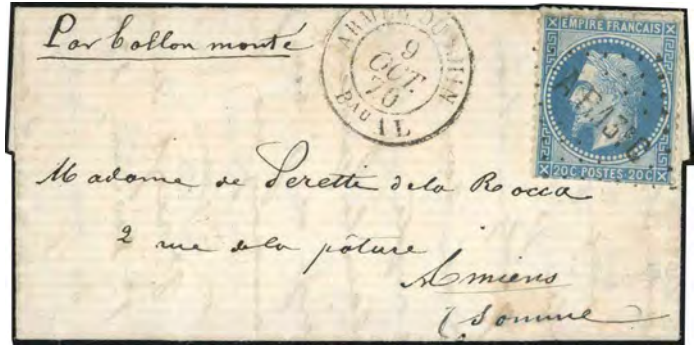 Par ballon monté
ARMÉE DU RHIN
9
OCT.
70
Bau AL
EMPIRE FRANÇAIS
20C POSTES 20C
Madame de Peretti dela Rocca
2 rue dela pâture
Amiens
(Somme